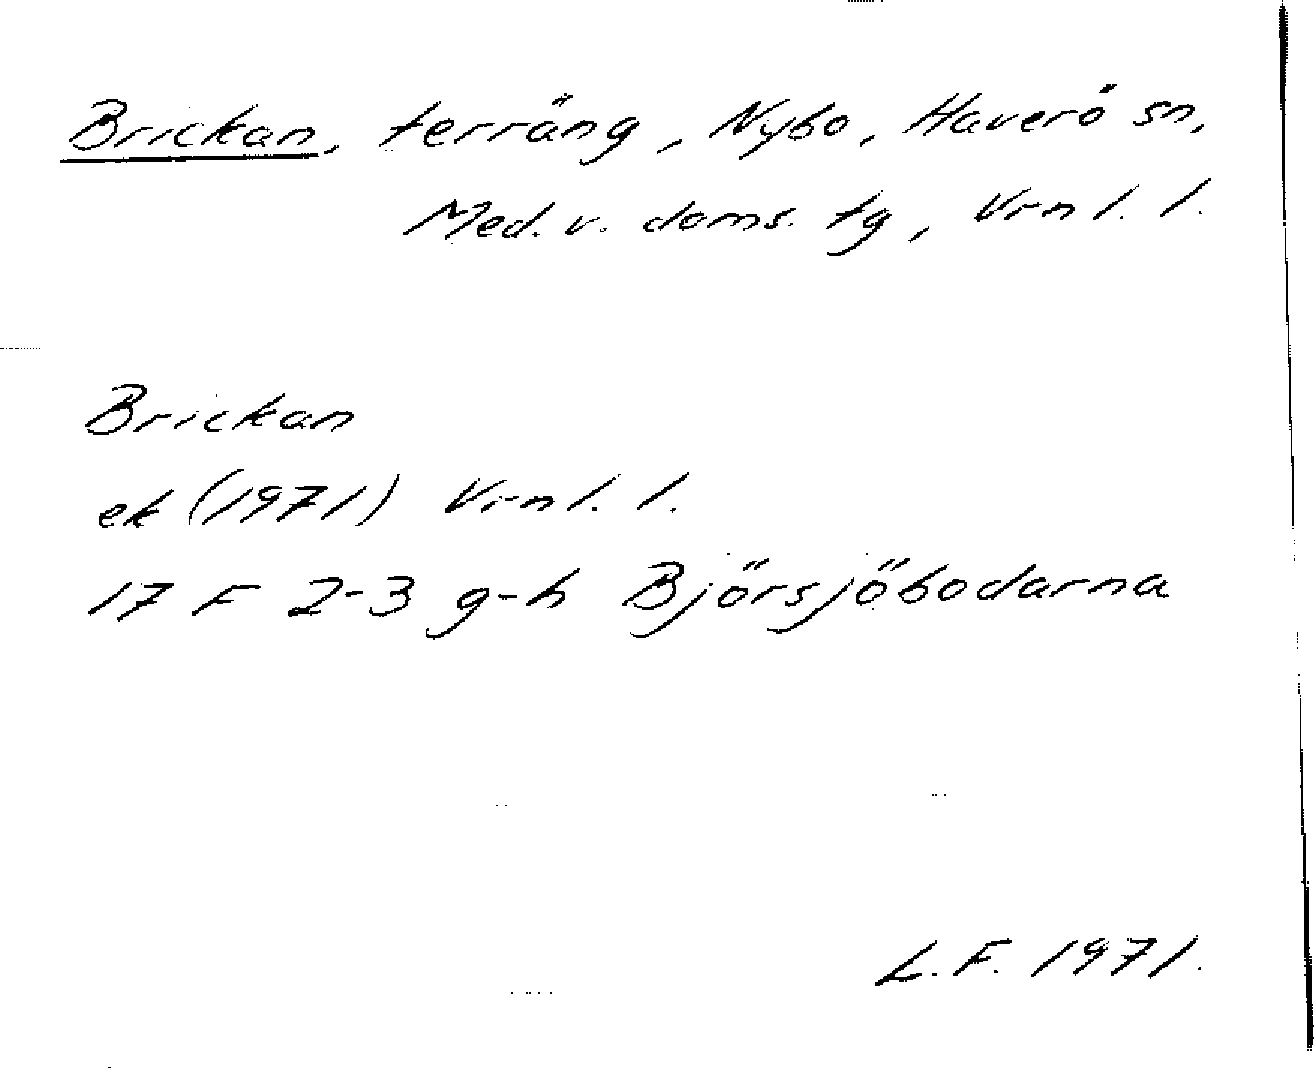 Brickan, terräng, Nybo, Haverö sn,
Med. v. doms. tg, Vrnl. l.
Brickan
ek (1971) Vrnl. l.
17 F 2-3 g-h Björsjöbodarna
L.F. 1971.